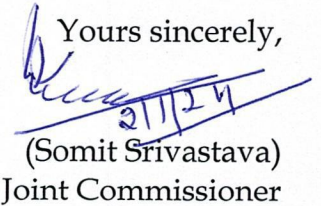 Yours sincerely,
2/1/24
(Somit Srivastava)
Joint Commissioner